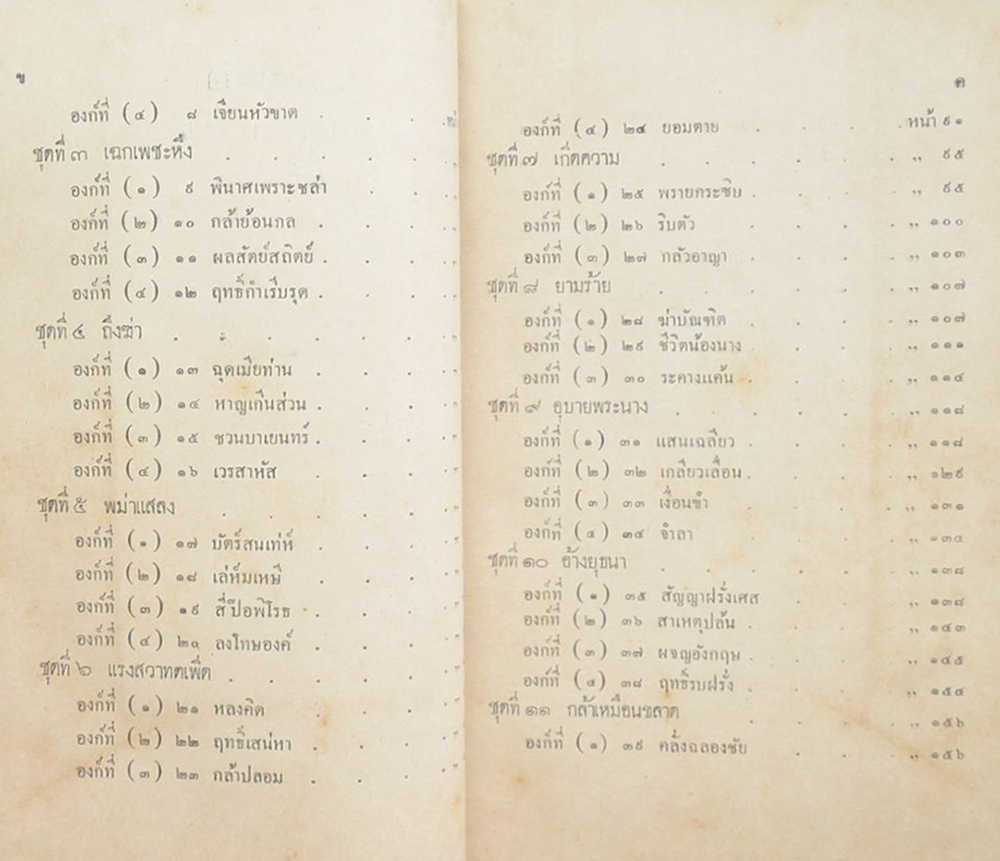 ข
องก์ที่ (๔) ๘ เจียนหัวขาด . . .
ชุดที่ ๓ เฉกเพชะหึง . . . . .
องก์ที่ (๑) ๙ พินาศเพราะชล่า . .
องก์ที่ (๒) ๑๐ กล้าย้อนกล . . .
องก์ที่ (๓) ๑๑ ผลสัตย์สถิตย์ . . .
องก์ที่ (๔) ๑๒ ฤทธิ์กำเริบรุด . . .
ชุดที่ ๔ ถึงฆ่า . . . . . .
องก์ที่ (๑) ๑๓ ฉุดเมียท่าน . . .
องก์ที่ (๒) ๑๔ หาญเกินส่วน . . .
องก์ที่ (๓) ๑๕ ชวนบาเยนทร์ . . .
องก์ที่ (๔) ๑๖ เวรสาหัส . . .
ชุดที่ ๕ พม่าแสลง . . . . .
องก์ที่ (๑) ๑๗ บัตร์สนเท่ห์ . . .
องก์ที่ (๒) ๑๘ เล่ห์มเหษี . . .
องก์ที่ (๓) ๑๙ สี่ป๊อพิโรธ . . .
องก์ที่ (๔) ๒๐ ลงโทษองค์ . . .
ชุดที่ ๖ แรงสวาทตเพิด . . . . .
องก์ที่ (๑) ๒๑ หลงคิด . . .
องก์ที่ (๒) ๒๒ ฤทธิ์เสน่หา . . .
องก์ที่ (๓) ๒๓ กล้าปลอม . . .
ค
องก์ที่ (๔) ๒๔ ยอมตาย . . . . หน้า ๙๑
ชุดที่ ๗ เกิดความ . . . . . ,, ๙๕
องก์ที่ (๑) ๒๕ พรายกระซิบ . . . . ,, ๙๕
องก์ที่ (๒) ๒๖ ริบตัว . . . . ,, ๑๐๐
องก์ที่ (๓) ๒๗ กลัวอาญา . . . . ,, ๑๐๓
ชุดที่ ๘ ยามร้าย . . . . . ,, ๑๐๗
องก์ที่ (๑) ๒๘ ฆ่าบัณฑิต . . . . ,, ๑๐๗
องก์ที่ (๒) ๒๙ ชีวิตน้องนาง . . . . ,, ๑๑๑
องก์ที่ (๓) ๓๐ ระคางแค้น . . . . ,, ๑๑๔
ชุดที่ ๙ อุบายพระนาง . . . . . ,, ๑๑๘
องก์ที่ (๑) ๓๑ แสนเฉลียว . . . . ,, ๑๑๘
องก์ที่ (๒) ๓๒ เกลียวเลื่อน . . . . ,, ๑๒๙
องก์ที่ (๓) ๓๓ เงื่อนขำ . . . . ,, ๑๓๑
องก์ที่ (๔) ๓๔ จำลา . . . . ,, ๑๓๔
ชุดที่ ๑๐ อ้างยุธนา . . . . . ,, ๑๓๘
องก์ที่ (๑) ๓๕ สัญญาฝรั่งเศส . . . ,, ๑๓๘
องก์ที่ (๒) ๓๖ สาเหตุปล้น . . . . ,, ๑๔๓
องก์ที่ (๓) ๓๗ ผจญอังกฤษ . . . . ,, ๑๔๕
องก์ที่ (๔) ๓๘ ฤทธิ์รบฝรั่ง . . . . ,, ๑๕๔
ชุดที่ ๑๑ กล้าเหมือนขลาด . . . . ,, ๑๕๖
องก์ที่ (๑) ๓๙ คลั่งฉลองชัย . . . ,, ๑๕๖